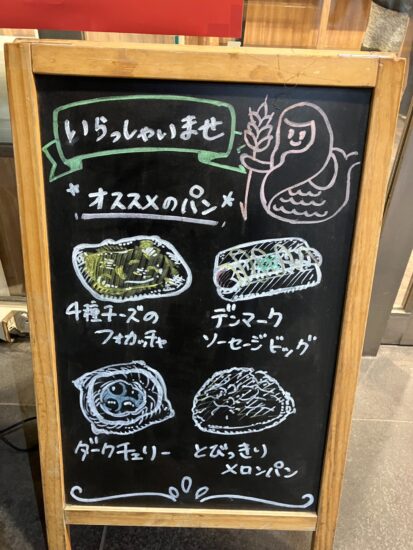 いらっしゃいませ
*オススメのパン*
4種チーズの
フォカッチャ
デンマーク
ソーセージドッグ
ダークチェリー
とびっきり
メロンパン